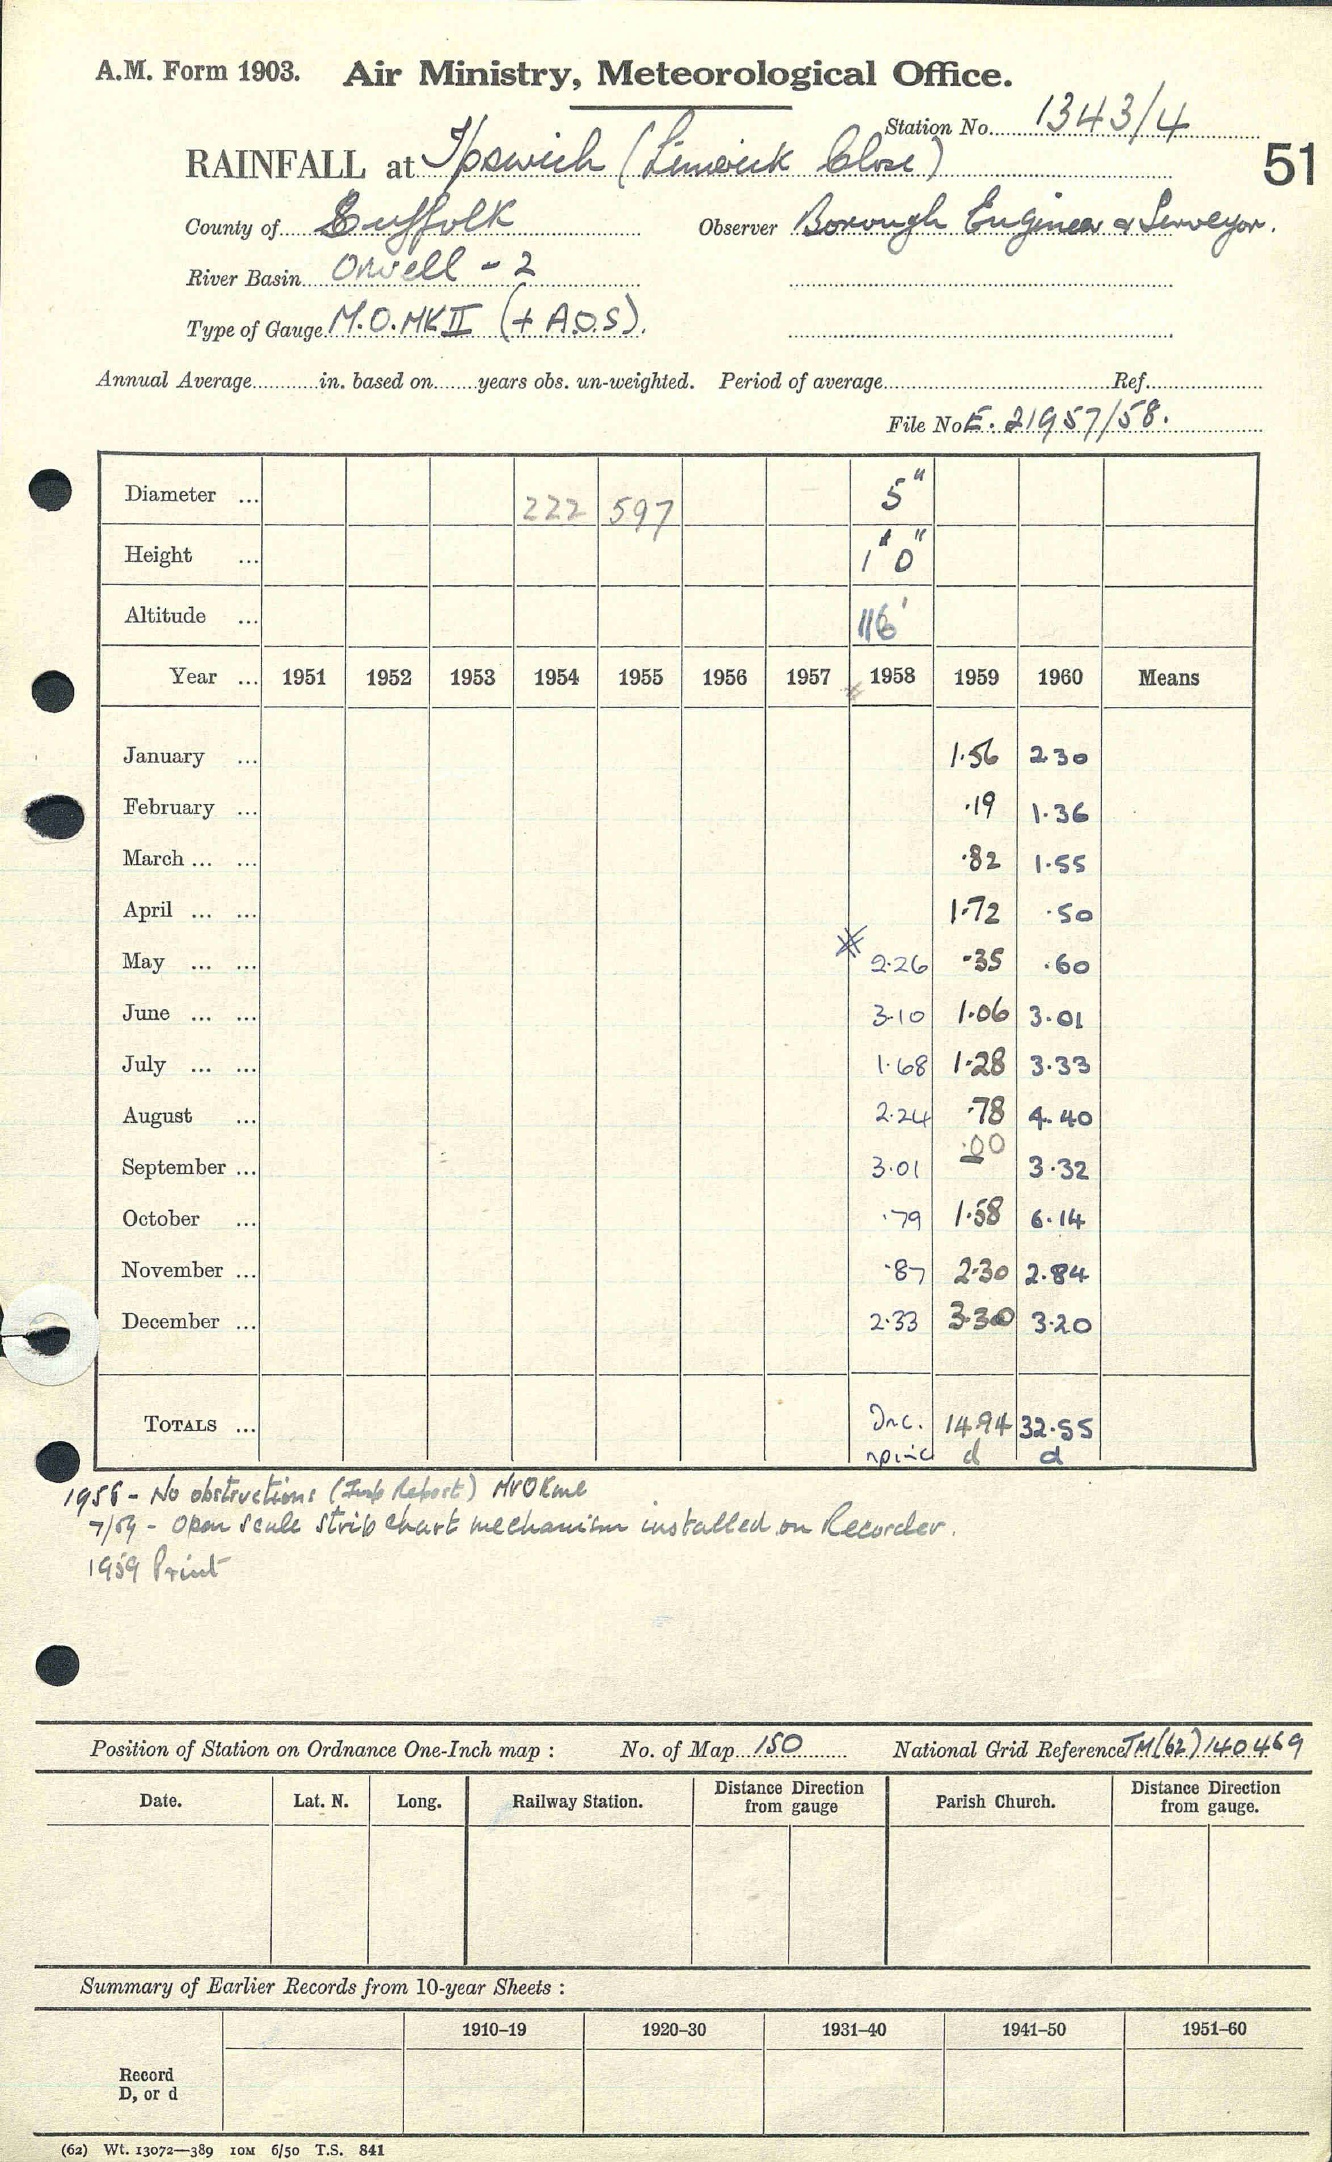 A.M. Form 1903. Air Ministry, Meteorological Office.
Station No. 1343/4
RAINFALL at Ipswich (Limerick Close)
51
County of Suffolk Observer Borough Engineer & Surveyor.
River Basin Orwell - 2
Type of Gauge M.O. MK II (+ A.O.S).
Annual Average in. based on years obs. un-weighted. Period of average Ref.
File No E. 21957/58.
Diameter ... 222 597 5"
Height ... 1' 0"
Altitude ... 116'
Year ... 1951 1952 1953 1954 1955 1956 1957 1958 1959 1960 Means
January ... 1.56 2.30
February ... .19 1.36
March ... ... .82 1.55
April ... ... 1.72 .50
May ... ... 2.26 .35 .60
June ... ... 3.10 1.06 3.01
July ... ... 1.68 1.28 3.33
August ... 2.24 .78 4.40
September ... 3.01 .00 3.32
October ... .79 1.58 6.14
November ... .87 2.30 2.84
December ... 2.33 3.30 3.20
TOTALS ... Inc. 14.94 32.55
d d
1958 - No obstructions (Insp Report)
7/59 - Open scale strip chart mechanism installed on Recorder.
1959 Print
Position of Station on Ordnance One-Inch map : No. of Map 150 National Grid Reference TM(62) 140469
Date. Lat. N. Long. Railway Station. Distance Direction from gauge Parish Church. Distance Direction from gauge.
Summary of Earlier Records from 10-year Sheets :
1910–19 1920–30 1931–40 1941–50 1951–60
Record
D, or d
(62) Wt. 13072—389 10M 6/50 T.S. 841